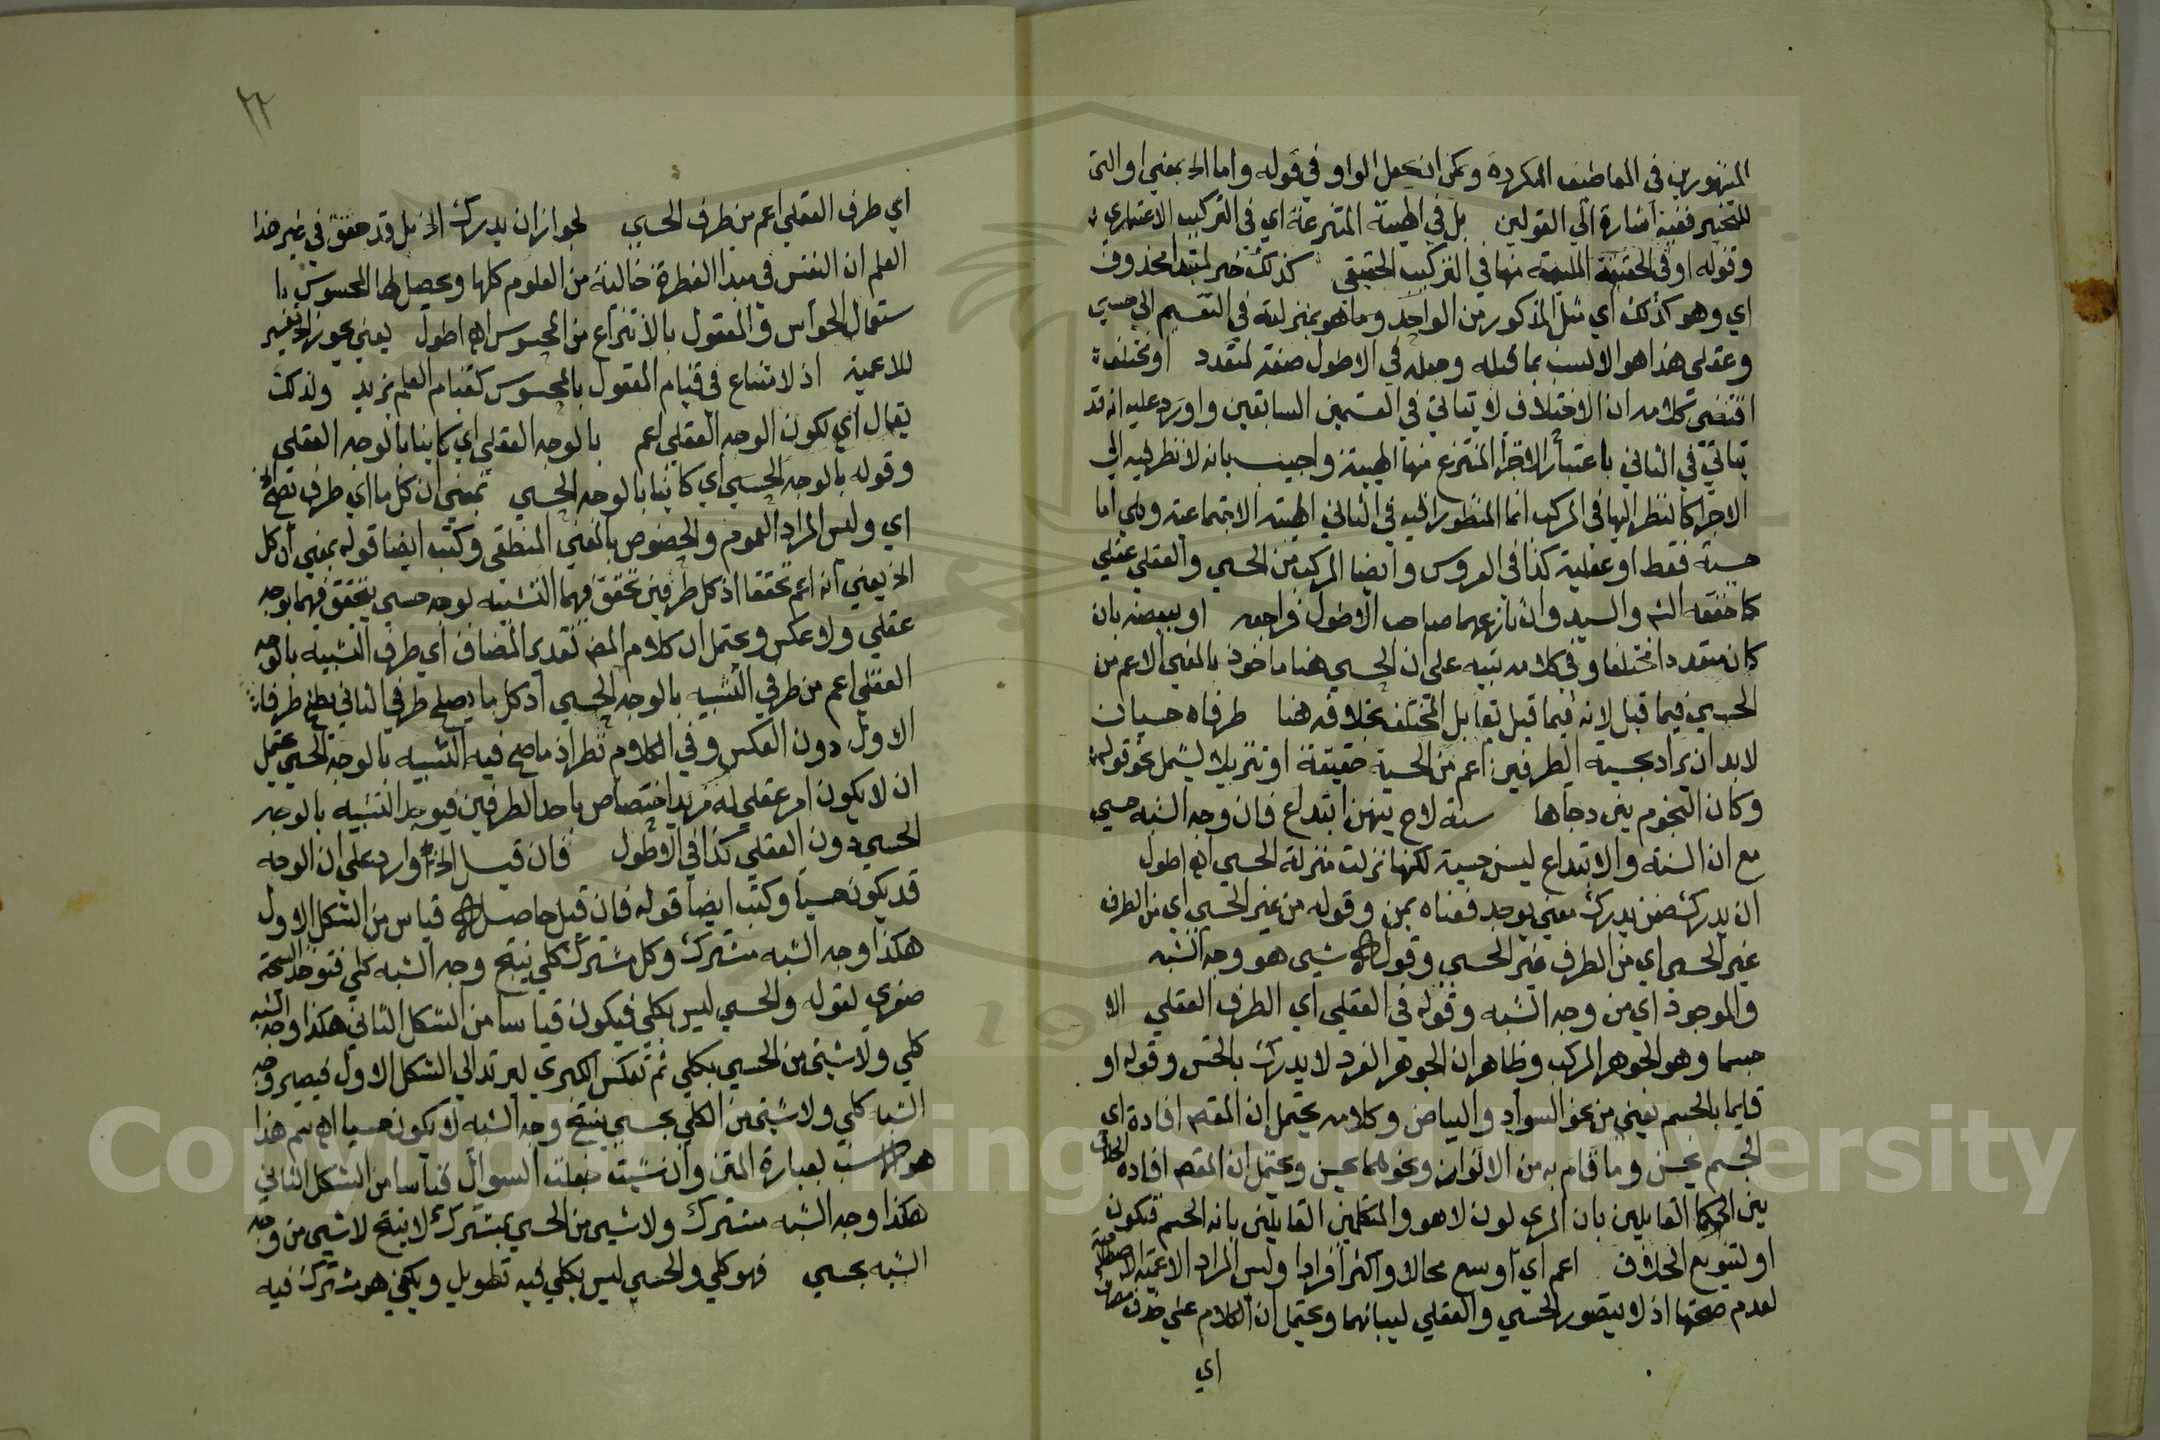 المشهورين في المعاطيف المكررة ويمكن ان يجعل الواو في قوله واما الخ بمعني او التي
للتخيير ففيه اشارة الي القولين بل في الهيئة المنتزعة اي في التركيب الاعتباري
وقوله او في الحقيقة الملتئمة منها في التركيب الحقيقي كذلك خبر لمبتدا محذوف
اي وهو كذلك اي مثل المذكور من الواحد وما هو بمنزلته في التقسيم الي حسي
وعقلي هذا هو الانسب بما قبله وجعله في الاطول صفة لمتعدد او مختلف
اقتضي كلامه ان الاختلاف لا يتاتي في القسمين السابقين واورد عليه انه قد
يتاتي في الثاني باعتبار الاجزا المنتزع منها الهيئة واجيب بانه لا نظر فيه الي
الاجزا كالنظر اليها في المركب انما المنظور اليه في الثاني الهيئة الاجتماعية وهي اما
حسية فقط او عقلية كذا في العروس وايضا المركب من الحسي والعقلي عقلي
كما حققه الشم والسيد وان نازعهما صاحب الاطول فراجعه او ببعضه بان
كان متعددا مختلفا وفي كلامه تنبيه علي ان الحسي هنا ماخوذ بالمعني الاعم من
الحسي فيما قبل لانه فيما قبل تقابل المختلف بخلافه هنا طرفاه حسيان
لا بد ان يراد بحسية الطرفين اعم من الحسية حقيقة او تنزيلا ليشمل نحو قوله
وكان النجوم بين دجاها سنة لاح بينهن ابتداع فان وجه الشبه حسي
مع ان السنة والابتداع ليس حسية لكنها نزلت منزلة الحسي اه اطول
ان يدرك ضمن يدرك معني يوجد فعداه بمن وقوله من غير الحسي اي من الطرف
غير الحسي اي من الطرف غير الحسي وقوله شيى هو وجه الشبه
والموجود اي من وجه الشبه وقوله في العقلي اي الطرف العقلي الا
جسما وهو الجوهر المركب وظاهر ان الجوهر الفرد لا يدرك بالحس وقوله او
قايما بالجسم يعني من نحو السواد والبياض وكلامه يحتمل ان المقصم افادة اي
الجسم يحس وما قام به من الالوان ونحوهما يحس ويحتمل ان المقصم افادة الخلاف
بين الحكما القايلين بان المري لون لا هو والمتكلمين القايلين بانه الجسم فتكون
او لتنويع الخلاف اعم اي اوسع محالا واكثر افرادا وليس المراد الاعمية الاصطلاحية
لعدم صحتها اذ لا يتصور الحسي والعقلي لتباينهما ويحتمل ان الكلام علي حذف مضاف
اي
٢٢
اي طرف العقلي اعم من طرف الحسي لجواز ان يدرك الخ بل قد حقق في غير هذا
العلم ان النفس في مبدا الفطرة خالية من العلوم كلها ويحصل لها المحسوس با
ستعمال الحواس والمعقول بالانتزاع من المحسوس اه اطول يعني يجوز الخ تفسير
للاعمية اذ لا امتناع في قيام المعقول بالمحسوس كقيام العلم بزيد ولذلك
يقال اي لكون الوجه العقلي اعم بالوجه العقلي اي كاينا بالوجه العقلي
وقوله بالوجه الحسي اي كاينا بالوجه الحسي بمعني ان كل ما اي طرف يصح الخ
اي وليس المراد العموم والخصوص بالمعني المنطقي وكتب ايضا قوله بمعني ان كل
الخ يعني انه اعم تحققا اذ كل طرفين تحقق فيهما التشبيه بوجه حسي يتحقق فيهما بوجه
عقلي ولا عكس ويحتمل ان كلام المصم بتقدير المضاف اي طرف التشبيه بالوجه
العقلي اعم من طرفي التشبيه بالوجه الحسي اذ كل ما يصلح طرفي الثاني يصلح طرفا
الاول دون العكس وفي الكلام نظر اذ ما صح فيه التشبيه بالوجه الحسي يحتمل
ان لا يكون امر عقلي له مزيد اختصاص باحد الطرفين فيوجد التشبيه بالوجه
الحسي دون العقلي كذا في الاطول فان قيل الخ وارد علي ان الوجه
قد يكون حسيا وكتب ايضا قوله فان قيل حاصله قياس من الشكل الاول
هكذا وجه الشبه مشترك وكل مشترك كلي ينتج وجه الشبه كلي فتوخذ النتيجة
صغري لقوله والحسي ليس بكلي فيكون قياسا من الشكل الثاني هكذا وجه الشبه
كلي ولا شيئ من الحسي بكلي ثم تعكس الكبري ليرتد الي الشكل الاول فيصير وجه
الشبه كلي ولا شيئ من الكلي بحسي ينتج وجه الشبه لا يكون حسيا اه يتم هذا
هو المناسب لعبارة المتن وان شيت جعلت السوال قياسا من الشكل الثاني
هكذا وجه الشبه مشترك ولا شيى من الحسي بمشترك لا ينتج لا شيى من وجه
الشبه بحسي فهو كلي والحسي ليس بكلي فيه تطويل ويكفي هو مشترك فيه
Copyright © King Saud University